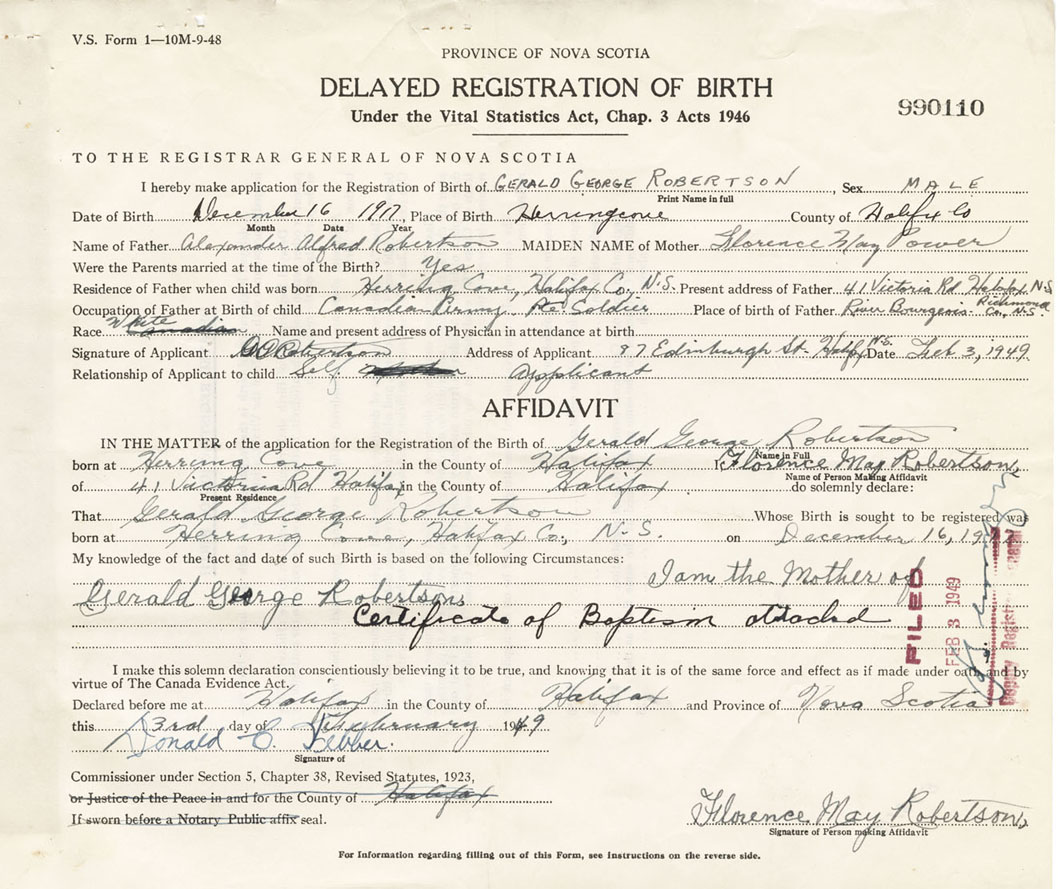 V.S. Form 1—10M-9-48
PROVINCE OF NOVA SCOTIA
DELAYED REGISTRATION OF BIRTH
Under the Vital Statistics Act, Chap. 3 Acts 1946
990110
TO THE REGISTRAR GENERAL OF NOVA SCOTIA
I hereby make application for the Registration of Birth of GERALD GEORGE ROBERTSON, Sex MALE
Print Name in full
Date of Birth December 16 1917, Place of Birth Herringcove County of Halifx Co
Month Date Year
Name of Father Alexander Alfred Robertson MAIDEN NAME of Mother Florence May Power
Were the Parents married at the time of the Birth? Yes
Residence of Father when child was born Herring Cove, Halifax Co., N.S. Present address of Father 41 Victoria Rd Halifax, N.S
Occupation of Father at Birth of child Canadian Army Pte. Soldier Place of birth of Father River Bourgeois Richmond Co., N.S.
Race White Canadian Name and present address of Physician in attendance at birth
Signature of Applicant Robertson Address of Applicant 97 Edinburgh St. Halifx N.S. Date Feb 3, 1949
Relationship of Applicant to child Self Applicant
AFFIDAVIT
IN THE MATTER of the application for the Registration of the Birth of Gerald George Robertson
Name in Full
born at Herring Cove in the County of Halifax I, Florence May Robertson,
Name of Person Making Affidavit
of 41 Victoria Rd Halifax in the County of Halifax do solemnly declare:
Present Residence
That Gerald George Robertson Whose Birth is sought to be registered was
born at Herring Cove, Halifax Co., N.S. on December 16, 1917
My knowledge of the fact and date of such Birth is based on the following Circumstances:
I am the Mother of
Gerald George Robertson
Certificate of Baptism attached
FILED
FEB 3 1949
Deputy Registrar
I make this solemn declaration conscientiously believing it to be true, and knowing that it is of the same force and effect as if made under oath and by
virtue of The Canada Evidence Act.
Declared before me at Halifax in the County of Halifax and Province of Nova Scotia
this 3rd day of February 1949
Donald C.
Signature of
Commissioner under Section 5, Chapter 38, Revised Statutes, 1923,
or Justice of the Peace in and for the County of Halifax
If sworn before a Notary Public affix seal.
Florence May Robertson,
Signature of Person making Affidavit
For Information regarding filling out of this Form, see Instructions on the reverse side.